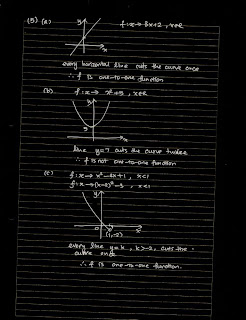 (5) (a) y f : x → 3x+2 , x∈R
x
every horizontal line cuts the curve once
∴ f is one-to-one function
(b) y f : x → x²+5 , x∈R
5
x
line y=7 cuts the curve twice
∴ f is not one-to-one function
(c) f : x → x²-4x+1 , x<1
f : x → (x-2)²-3 , x<1
y
0 x
(1,-2)
every line y=k , k>-2, cuts the
curve once
∴ f is one-to-one function.